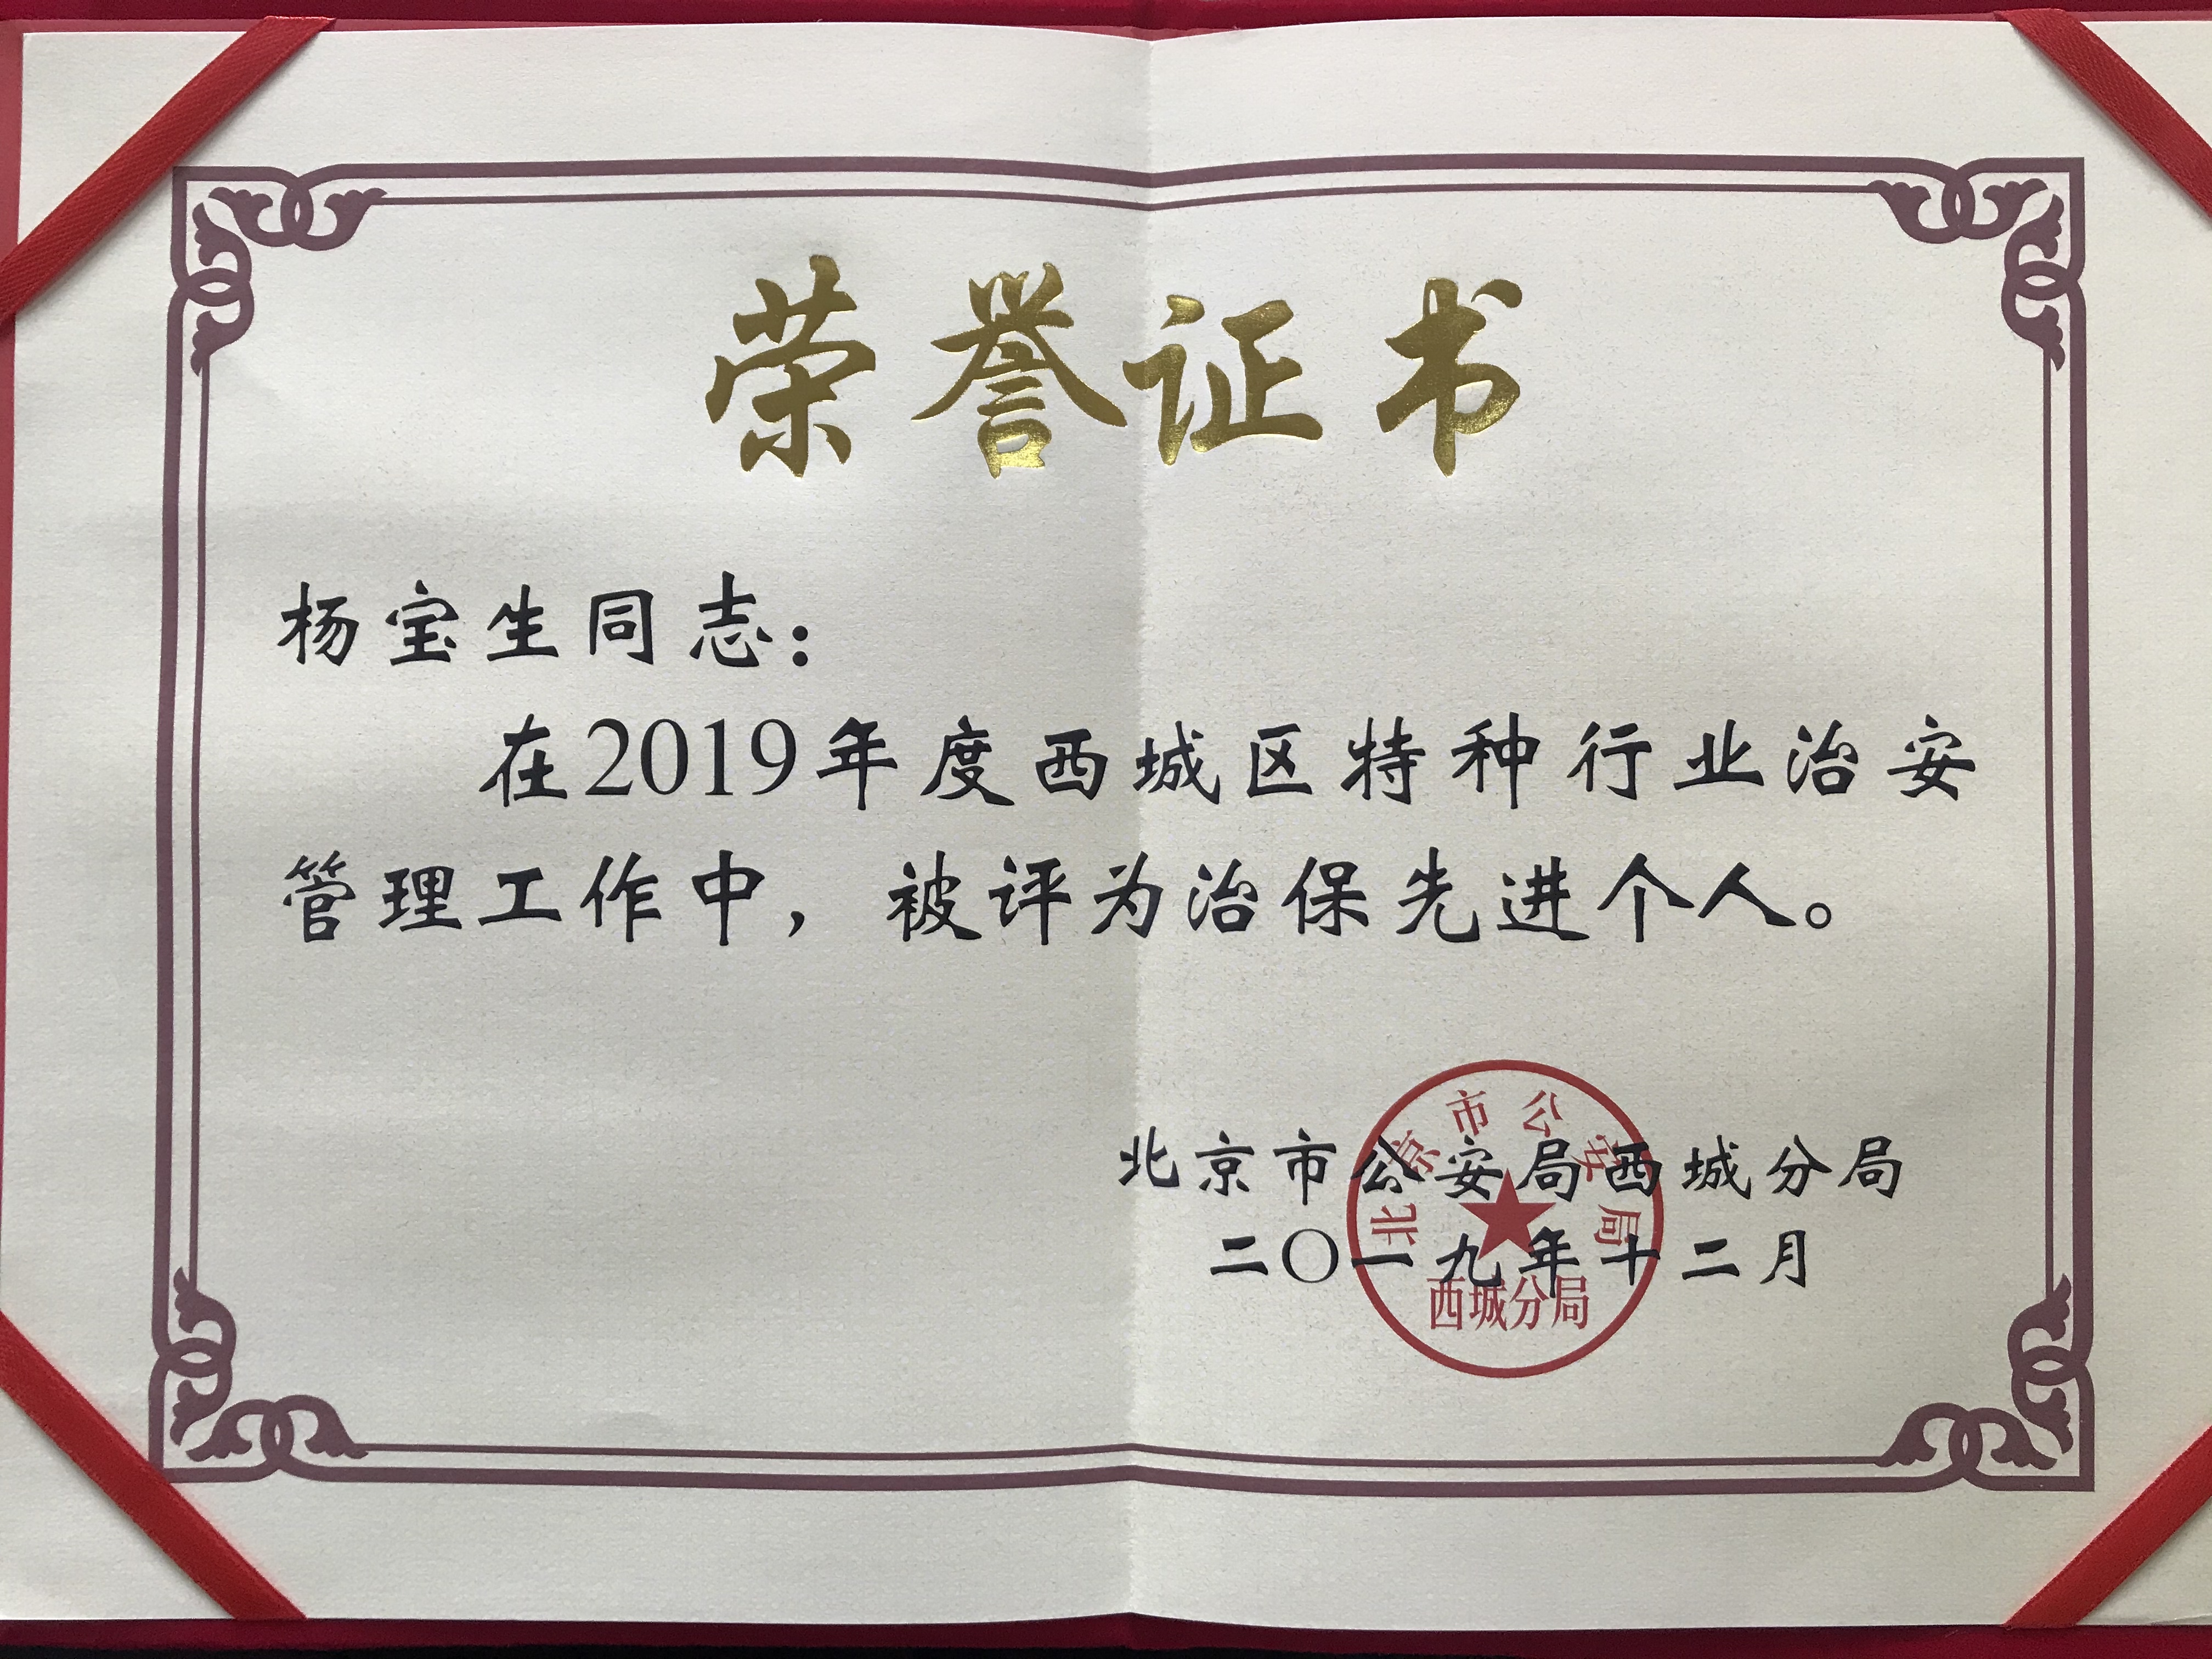 荣誉证书
杨宝生同志：
在2019年度西城区特种行业治安
管理工作中，被评为治保先进个人。
北京市公安局西城分局
二〇一九年十二月
北京市公安局
西城分局